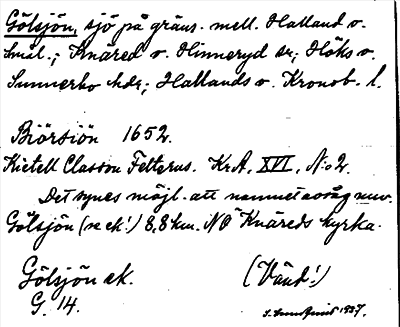 Gölsjön, sjö på gräns. mell. Halland o.
Smål.; Knäred o. Hinneryd sr; Höks o.
Sunnerbo hdr; Hallands o. Kronob. l.
Biörsiön 1652.
Kietell Classon Felterus. KrA, XVI, N:o 2.
Det synes möjl. att namnet avsåg nuv.
Gölsjön (se ek!) 8,8 km. NO Knäreds kyrka.
Gölsjön ek. (Vänd!)
G. 14. 1937.